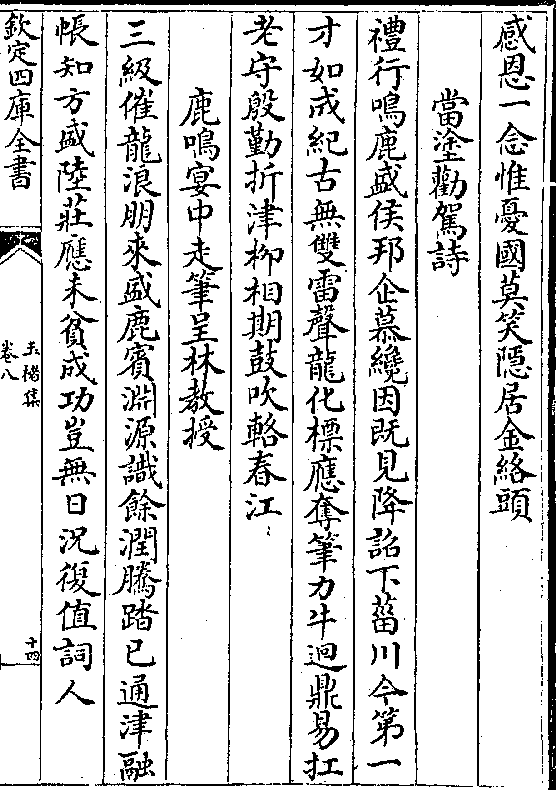 感恩一念惟憂國莫笑隱居金絡頭
當塗勸駕詩
禮行鳴鹿盛侯邦企慕纔因既見降詔下菑川今第一
才如成紀古無雙雷聲龍化標應奪筆力牛迴鼎易扛
老守殷勤折津柳相期鼓吹輅春江
鹿鳴宴中走筆呈林教授
三級催龍浪朋來盛鹿賓淵源識餘潤騰踏已通津融
帳知方盛陸莊應未貧成功豈無日況復值詞人
欽定四庫全書
玉楮集
卷八
十四